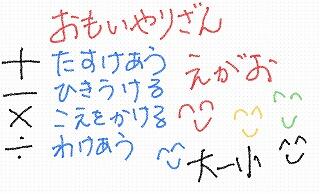 おもいやりざん
+ たすけあう
− ひきうける
× こえをかける
÷ わけあう
えがお
大一小